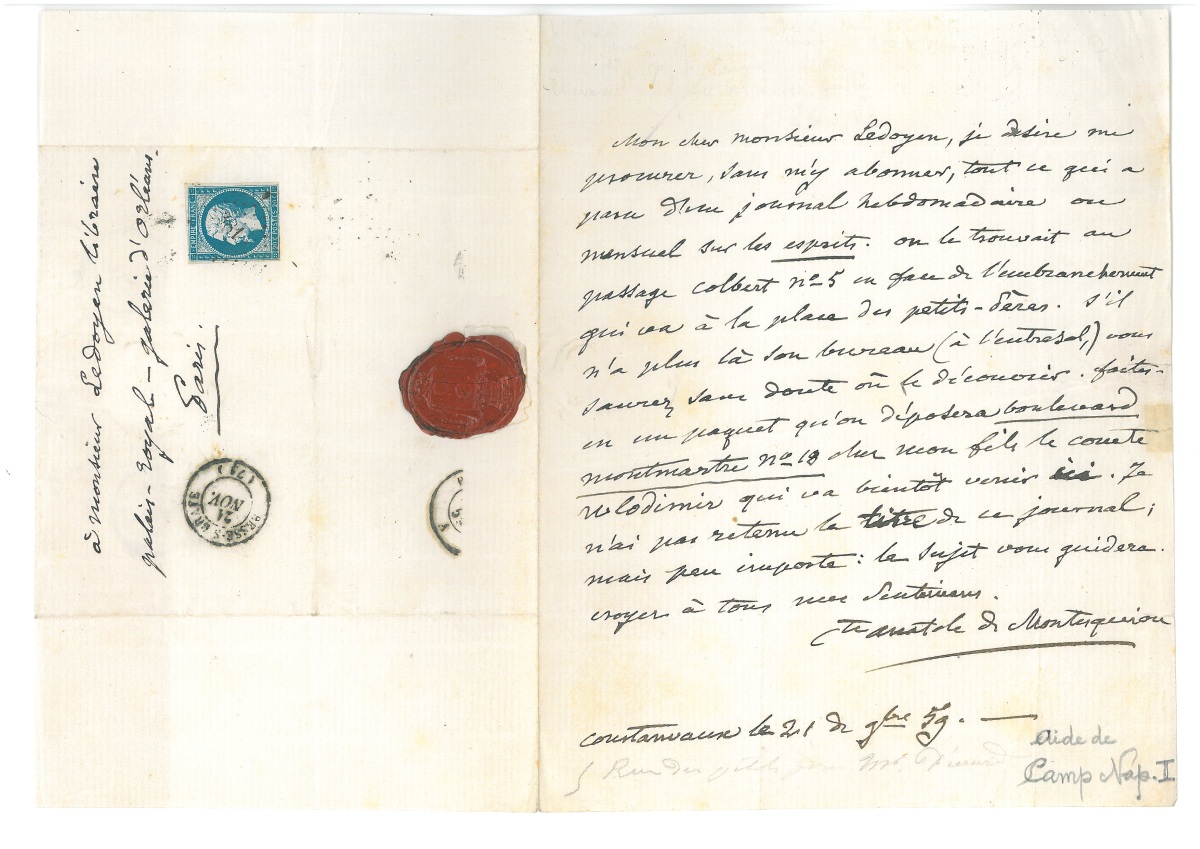 à monsieur Ledoyen libraire
palais-royal – galerie d'Orléans.
Paris.
EMPIRE FRANC
POSTES
BESSE-S-BRAYE
21
NOV.
(71)
Mon cher monsieur Ledoyen, je désire me
procurer, sans m'y abonner, tout ce qui a
paru d'un journal hebdomadaire ou
mensuel sur les esprits. on le trouvait au
passage colbert no 5 en face de l'embranchement
qui va à la place des petits-pères. s'il
n'a plus là son bureau (à l'entresol,) vous
saurez sans doute où le découvrir. faites-
en un paquet qu'on déposera boulevard
montmartre no 19 chez mon fils le comte
Wlodimir qui va bientôt venir ici. Je
n'ai pas retenu le titre de ce journal;
mais peu importe: le sujet vous guidera.
croyez à tous mes sentimens.
Cte anatole de Montesquiou
courtanvaux le 21 de 9bre 59.
5 Rue des
aide de
Camp Nap. I